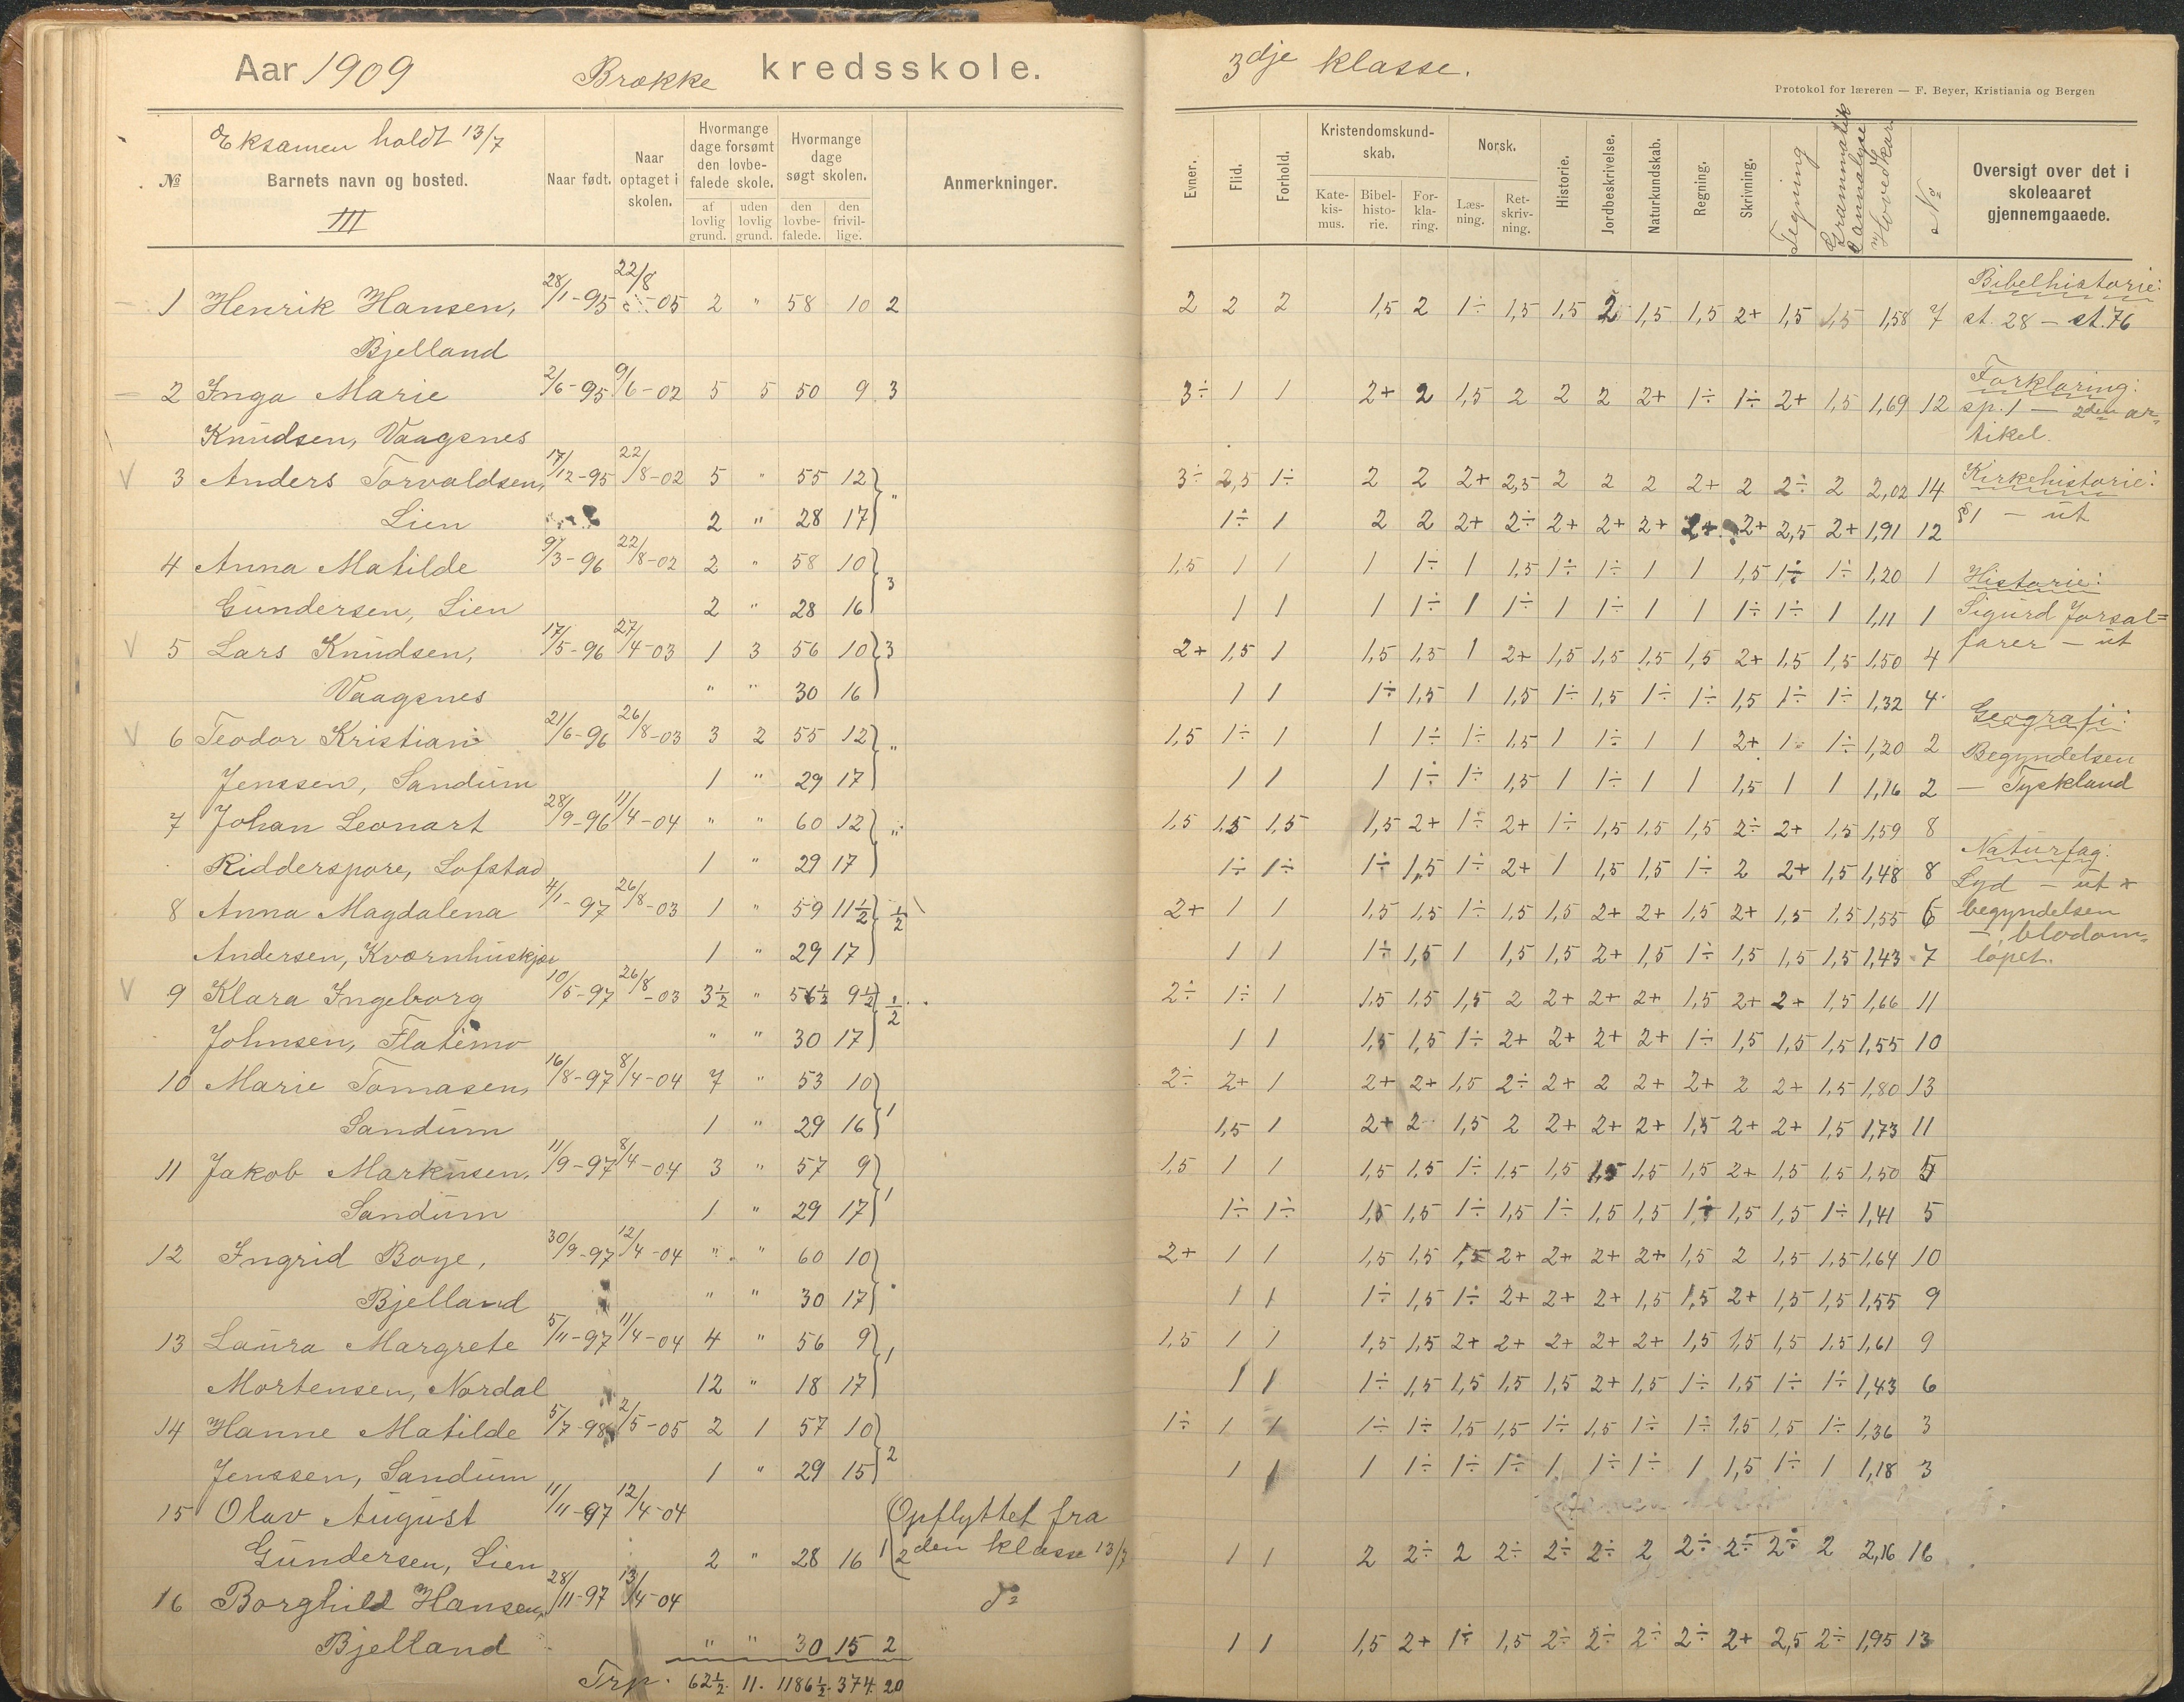 Aar 1909 Brække kredsskole.
№ Eksamen holdt 13/7 Barnets navn og bosted. III Naar født. Naar optaget i skolen. Hvormange dage forsømt den lovbefalede skole. af lovlig grund. uden lovlig grund. Hvormange dage søgt skolen. den lovbefalede. den frivillige. Anmerkninger.
1 Henrik Hansen, 28/1-95 22/8 -05 2 " 58 10 2
Bjelland
2 Inga Marie 2/6-95 9/6-02 5 5 50 9 3
Knudsen, Vaagsnes
3 Anders Torvaldsen, 17/12-95 22/8-02 5 " 55 12 "
Lien 2 " 28 17
4 Anna Matilde 9/3-96 22/8-02 2 " 58 10 3
Gundersen, Lien 2 " 28 16
5 Lars Knudsen, 17/5-96 27/4-03 1 3 56 10 3
Vaagsnes " " 30 16
6 Teodor Kristian 21/6-96 26/8-03 3 2 55 12 "
Jenssen, Sandum 1 " 29 17
7 Johan Leonart 28/9-96 11/4-04 " " 60 12 "
Ridderspore, Lofstad 1 " 29 17
8 Anna Magdalena 4/1-97 26/8-03 1 " 59 11½ ½
Andersen, Kværnhuskjær 1 " 29 17
9 Klara Ingeborg 10/5-97 26/8-03 3½ " 56½ 9½ ½
Johnsen, Flatemo " " 30 17
10 Marie Tomasen, 16/8-97 8/4-04 7 " 53 10 1
Sandum 1 " 29 16
11 Jakob Markusen, 11/9-97 8/4-04 3 " 57 9 1
Sandum 1 " 29 17
12 Ingrid Boye, 30/9-97 12/4-04 " " 60 10
Bjelland " " 30 17
13 Laura Margrete 5/11-97 11/4-04 4 " 56 9 1
Mortensen, Nordal 12 " 18 17
14 Hanne Matilde 5/7-98 2/5-05 2 1 57 10 2
Jenssen, Sandum 1 " 29 15
15 Olav August 11/11-97 12/4-04 Opflyttet fra
Gundersen, Lien 2 " 28 16 1 2den klasse 13/7
16 Borghild Hansen, 28/11-97 13/4-04 do
Bjelland " " 30 15 2
Trp. 62½. 11. 1186½. 374. 20
3dje klasse.
Protokol for læreren — F. Beyer, Kristiania og Bergen
Evner. Flid. Forhold. Kristendomskundskab. Katekismus. Bibelhistorie. Forklaring. Norsk. Læsning. Retskrivning. Historie. Jordbeskrivelse. Naturkundskab. Regning. Skrivning. Tegning Grammatik & annalyse Hovedkar. № Oversigt over det i skoleaaret gjennemgaaede.
2 2 2 1,5 2 1÷ 1,5 1,5 2 1,5 1,5 2+ 1,5 1,5 1,58 7
3÷ 1 1 2+ 2 1,5 2 2 2 2+ 1÷ 1÷ 2+ 1,5 1,69 12
3÷ 2,5 1÷ 2 2 2+ 2,5 2 2 2 2+ 2 2÷ 2 2,02 14
1÷ 1 2 2 2+ 2÷ 2+ 2+ 2+ 2+ 2+ 2,5 2+ 1,91 12
1,5 1 1 1 1÷ 1 1,5 1÷ 1÷ 1 1 1,5 1÷ 1÷ 1,20 1
1 1 1 1÷ 1 1÷ 1 1÷ 1 1 1÷ 1÷ 1 1,11 1
2+ 1,5 1 1,5 1,5 1 2+ 1,5 1,5 1,5 1,5 2+ 1,5 1,5 1,50 4
1 1 1÷ 1,5 1 1,5 1÷ 1,5 1÷ 1÷ 1,5 1÷ 1÷ 1,32 4
1,5 1÷ 1 1 1÷ 1÷ 1,5 1 1÷ 1 1 2+ 1 1÷ 1,20 2
1 1 1 1÷ 1÷ 1,5 1 1÷ 1 1 1,5 1 1 1,16 2
1,5 1,5 1,5 1,5 2+ 1÷ 2+ 1÷ 1,5 1,5 1,5 2÷ 2+ 1,5 1,59 8
1÷ 1÷ 1÷ 1,5 1÷ 2+ 1 1,5 1,5 1÷ 2 2+ 1,5 1,48 8
2+ 1 1 1,5 1,5 1÷ 1,5 1,5 2+ 2+ 1,5 2+ 1,5 1,5 1,55 6
1 1 1÷ 1,5 1 1,5 1,5 2+ 1,5 1÷ 1,5 1,5 1,5 1,43 7
2÷ 1÷ 1 1,5 1,5 1,5 2 2+ 2+ 2+ 1,5 2+ 2+ 1,5 1,66 11
1 1 1,5 1,5 1÷ 2+ 2+ 2+ 2+ 1÷ 1,5 1,5 1,5 1,55 10
2÷ 2+ 1 2+ 2+ 1,5 2÷ 2+ 2 2+ 2+ 2 2+ 1,5 1,80 13
1,5 1 2+ 2 1,5 2 2+ 2+ 2+ 1,5 2+ 2+ 1,5 1,73 11
1,5 1 1 1,5 1,5 1÷ 1,5 1,5 1,5 1,5 1,5 2+ 1,5 1,5 1,50 5
1÷ 1÷ 1,5 1,5 1÷ 1,5 1÷ 1,5 1,5 1÷ 1,5 1,5 1÷ 1,41 5
2+ 1 1 1,5 1,5 1,5 2+ 2+ 2+ 2+ 1,5 2 1,5 1,5 1,64 10
1 1 1÷ 1,5 1÷ 2+ 2+ 2+ 1,5 1,5 2+ 1,5 1,5 1,55 9
1,5 1 1 1,5 1,5 2+ 2+ 2+ 2+ 2+ 1,5 1,5 1,5 1,5 1,61 9
1 1 1÷ 1,5 1,5 1,5 1,5 2+ 1,5 1÷ 1,5 1÷ 1÷ 1,43 6
1÷ 1 1 1÷ 1÷ 1,5 1,5 1÷ 1,5 1÷ 1÷ 1,5 1,5 1÷ 1,36 3
1 1 1 1÷ 1÷ 1÷ 1 1÷ 1÷ 1 1,5 1÷ 1 1,18 3
1 1 2 2÷ 2 2÷ 2÷ 2÷ 2 2÷ 2÷ 2÷ 2 2,16 16
1 1 1,5 2+ 1÷ 1,5 2÷ 2÷ 2÷ 2÷ 2+ 2,5 2÷ 1,95 13
Bibelhistorie:
st. 28 — st. 76
Forklaring:
sp. 1 — 2den ar-
tikel.
Kirkehistorie:
§1 — ut
Historie:
Sigurd Jorsal=
farer — ut
Geografi:
Begyndelsen
— Tyskland
Naturfag:
Lyd — ut +
begyndelsen
— blodom-
løpet.